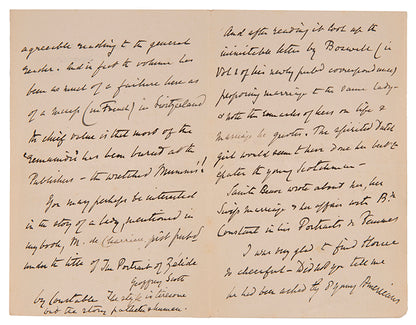 agreeable reading to the general
reader. And in fact the volume has
been as much of a failure here as
of a success (in French) in Switzerland
its chief value is that most of the
"remainder" has been buried at the
Publishers - the wretched Mummies!
You may perhaps be interested
in the story of a lady, mentioned in
my book, M. de Charriere, just publd
under the title of The Portrait of Zelide
Geoffrey Scott
by Constable The style is tiresome
but the story pathetic & human.
And after reading it look up the
inimitable letter by Boswell (in
Vol 2 of his newly publd correspondence)
proposing marriage to the same lady -
& note the remarks of hers on life &
marriage he quotes. The spirited Dutch
girl would seem to have done her best to
the young Scotchman -
Sainte Beuve wrote about her, her
Swiss marriage & her affair with B.
Constant in his Portraits de Femmes
I was very glad to find Horace
so cheerful - Did he tell you
he had been asked by 8 young Americans